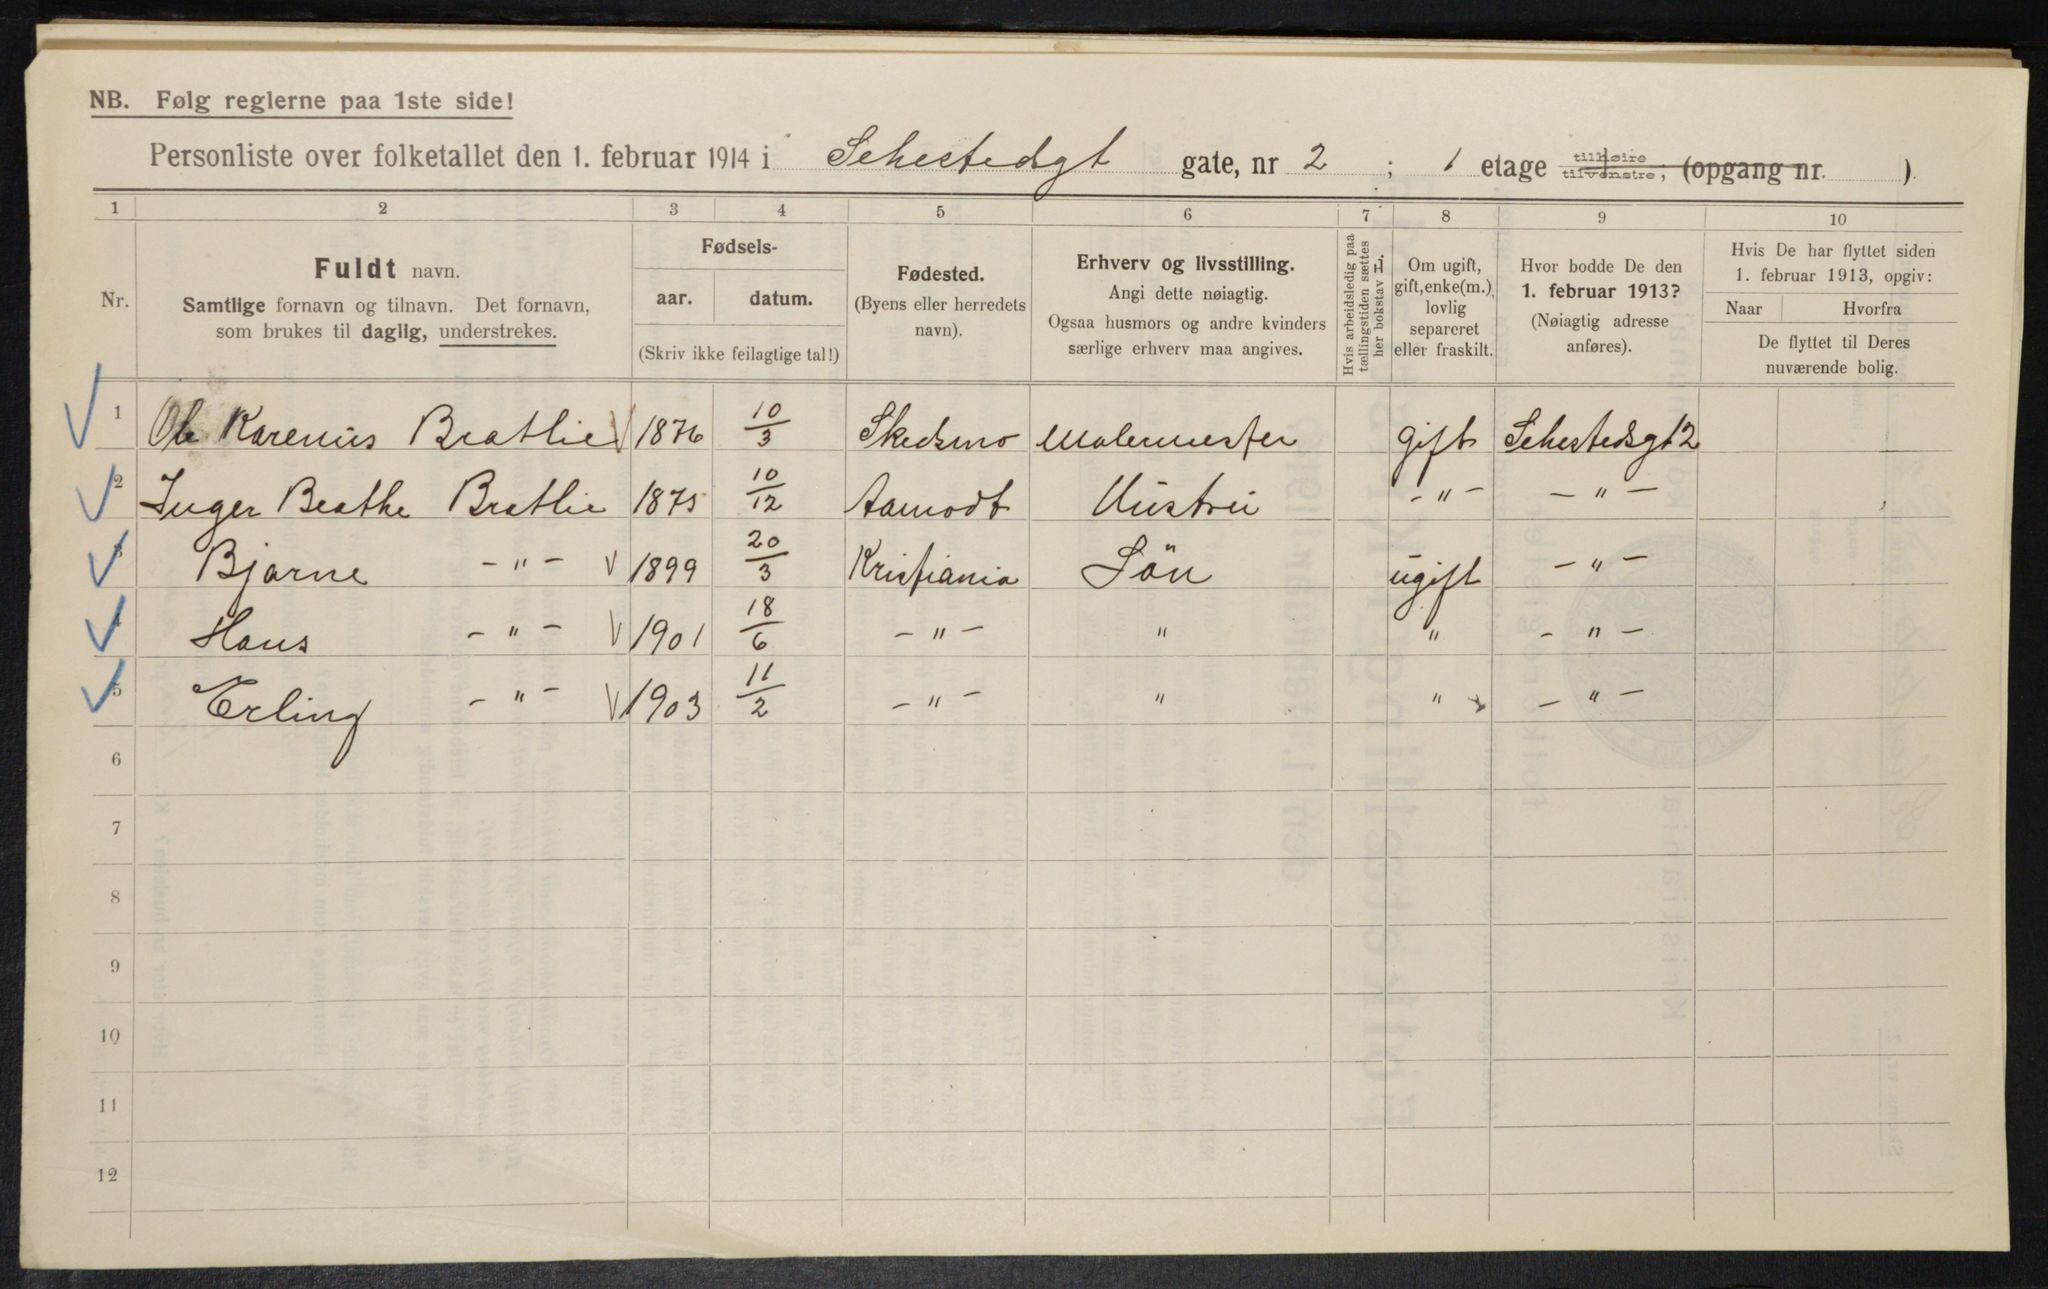 NB. Følg reglerne paa 1ste side!
Personliste over folketallet den 1. februar 1914 i Sehestedsgt gate, nr 2 ; 1 etage tilhøire tilvenstre; (opgang nr. ).
1 2 3 4 5 6 7 8 9 10
Nr.
Fuldt navn.
Samtlige fornavn og tilnavn. Det fornavn,
som brukes til daglig, understrekes.
Fødsels-
aar. datum.
(Skriv ikke feilagtige tal!)
Fødested.
(Byens eller herredets
navn).
Erhverv og livsstilling.
Angi dette nøiagtig.
Ogsaa husmors og andre kvinders
særlige erhverv maa angives.
Hvis arbeidsledig paa
tællingstiden sættes
her bokstav H.
Om ugift,
gift, enke(m.),
lovlig
separeret
eller fraskilt.
Hvor bodde De den
1. februar 1913?
(Nøiagtig adresse
anføres).
Hvis De har flyttet siden
1. februar 1913, opgiv:
Naar Hvorfra
De flyttet til Deres
nuværende bolig.
1 Ole Karenius Bratlie 1876 10/3 Skedsmo Malermester gift Sehestedsgt 2
2 Inger Beathe Bratlie 1875 10/12 Aamodt Hustru - " - - " -
3 Bjarne - " - 1899 20/3 Kristiania Søn ugift - " -
4 Hans - " - 1901 18/6 - " - " " - " -
5 Erling - " - 1903 11/2 - " - " " - " -
6
7
8
9
10
11
12